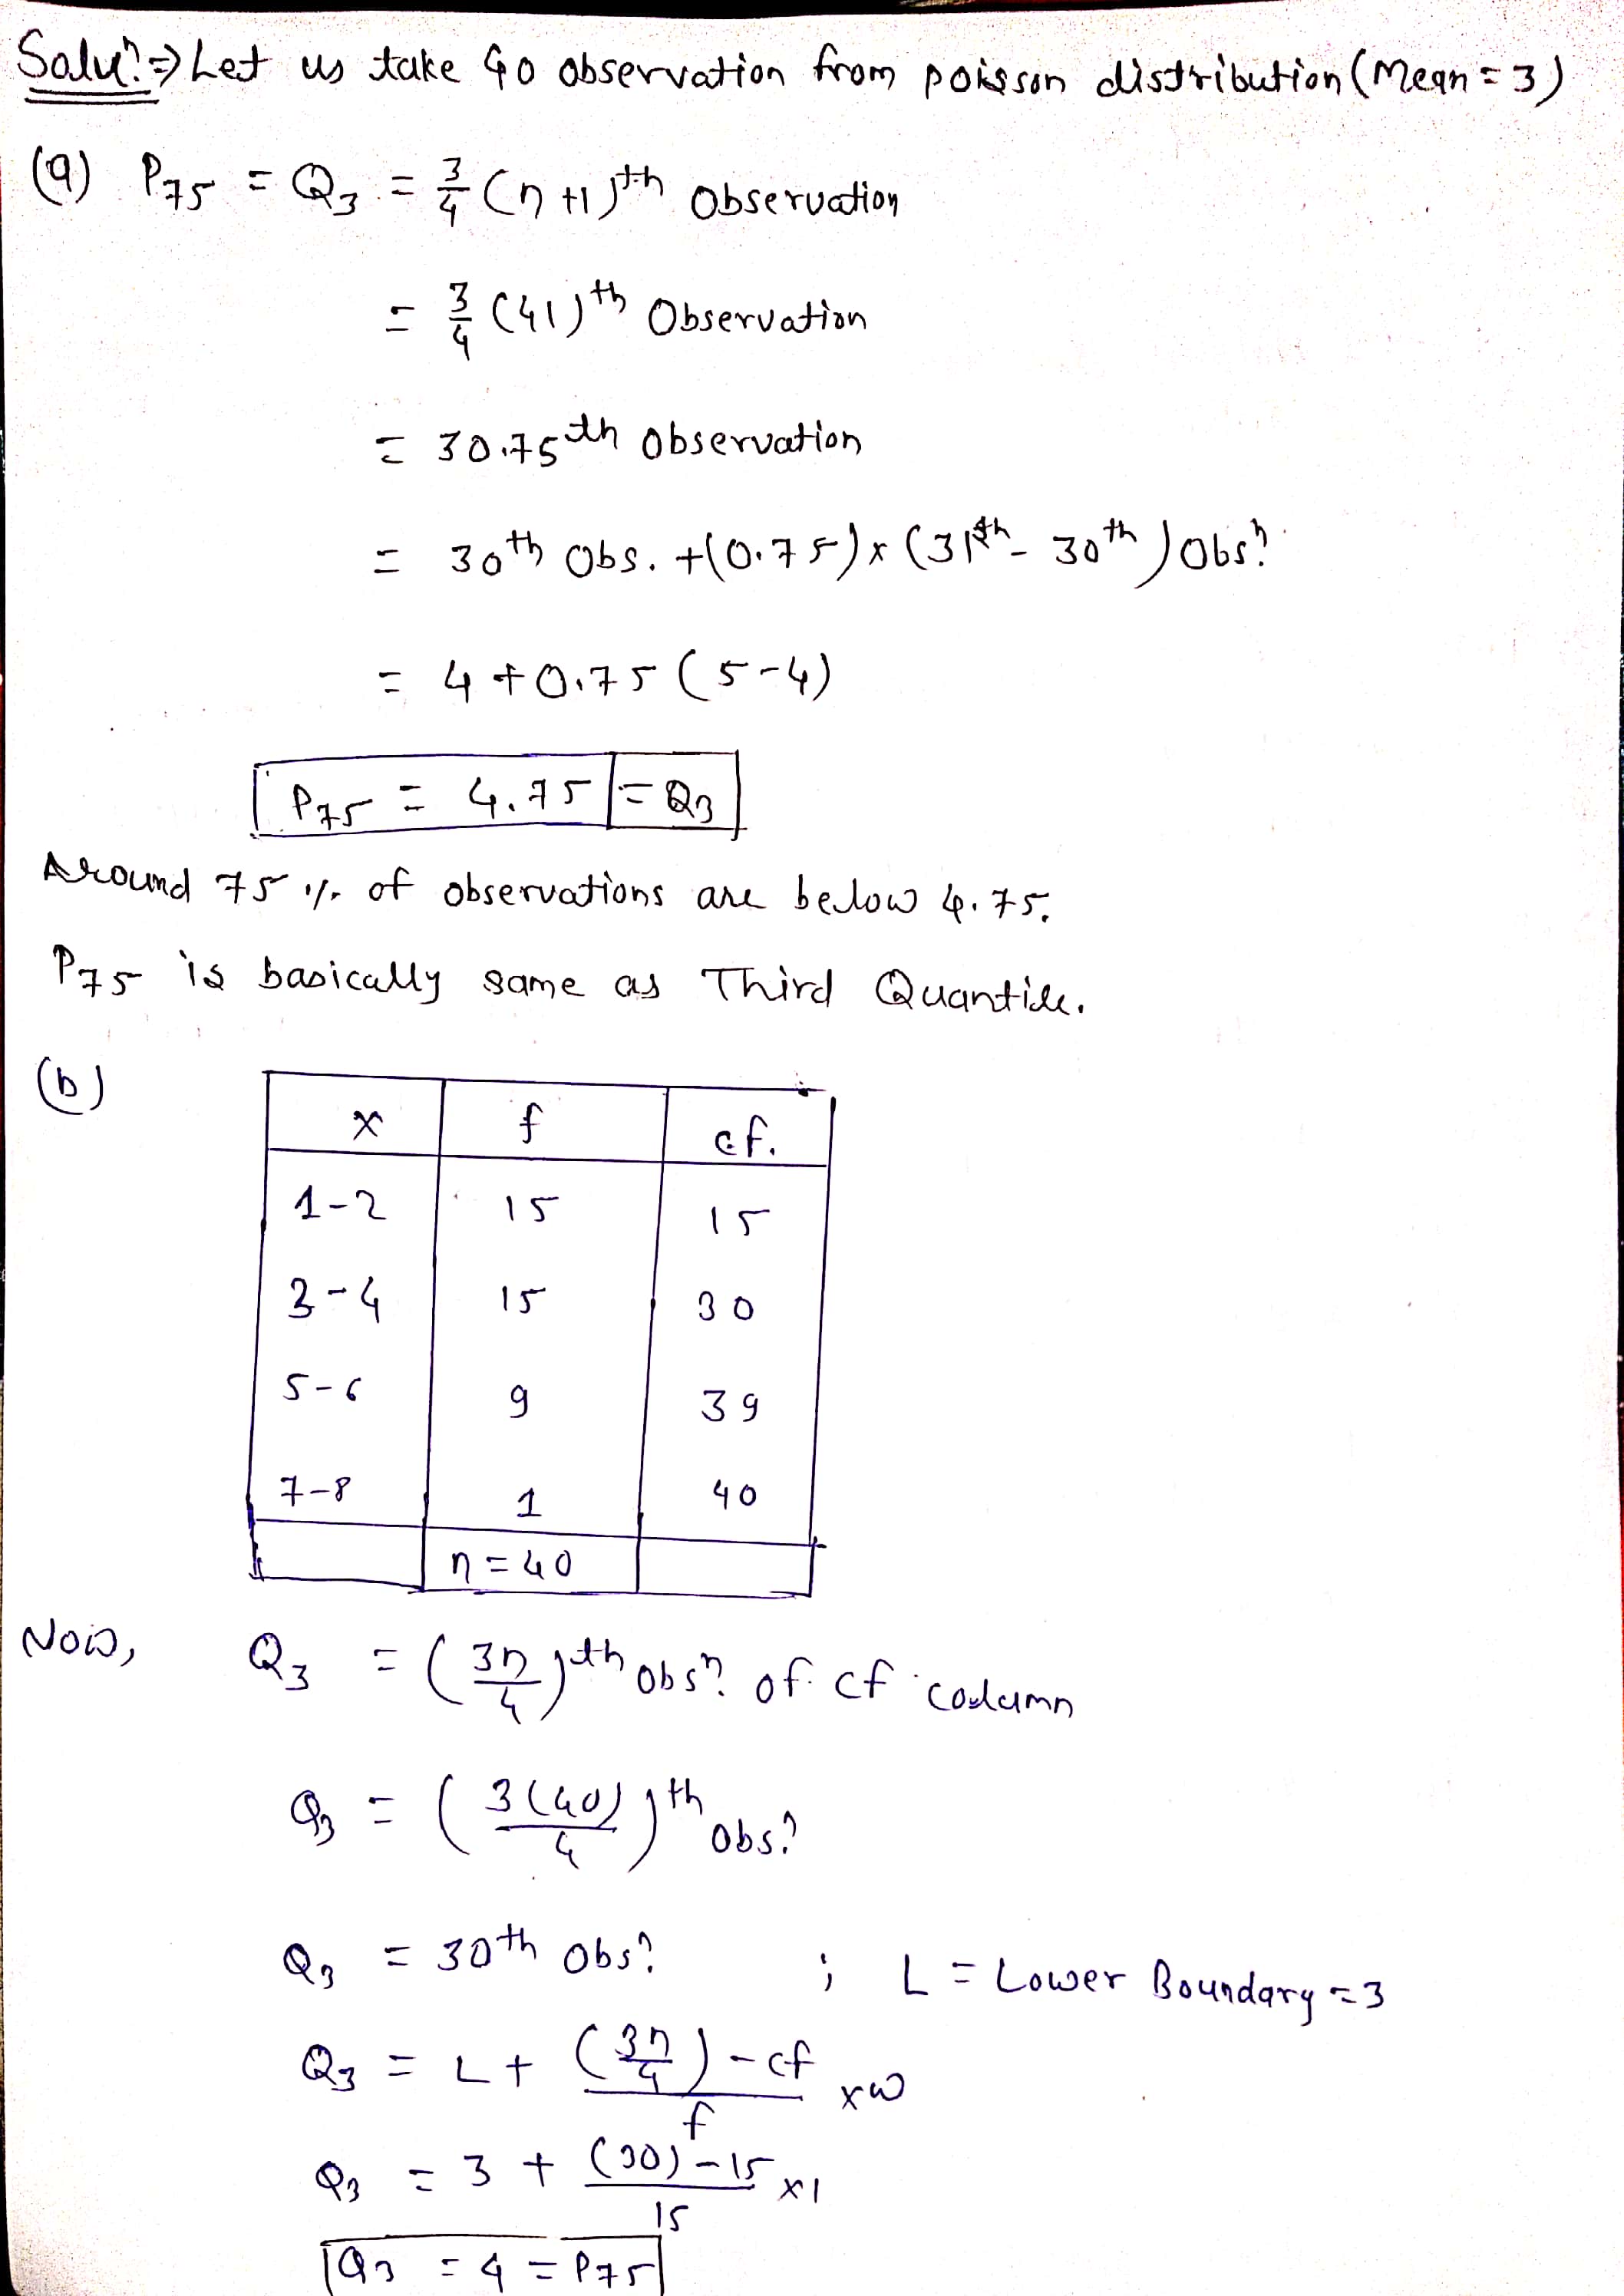 Solun:⇒ Let us take 40 observation from poisson distribution (Mean = 3)
(a) P75 = Q3 = 3/4 (n+1)th Observation
= 3/4 (41)th Observation
= 30.75th Observation
= 30th Obs. + (0.75) x (31th - 30th) Obsn.
= 4 + 0.75 (5-4)
P75 = 4.75 = Q3
Around 75 % of observations are below 4.75.
P75 is basically same as Third Quantile.
(b)
x f cf.
1-2 15 15
3-4 15 30
5-6 9 39
7-8 1 40
n = 40
Now, Q3 = (3n/4)th obsn. of cf column
Q3 = (3(40)/4)th obsn.
Q3 = 30th obsn. ; L = Lower Boundary = 3
Q3 = L + ((3n/4) - cf)/f x w
Q3 = 3 + ((30) - 15)/15 x 1
Q3 = 4 = P75